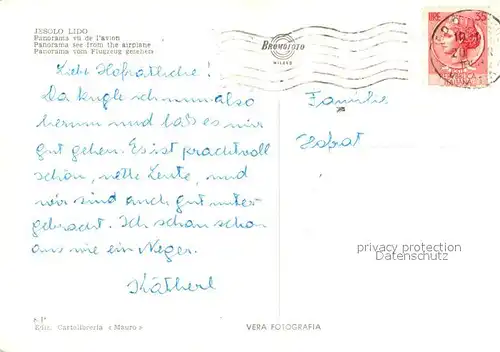 JESOLO LIDO
Panorama vu de l'avion
Panorama see from the airplane
Panorama vom Flugzeug gesehen
BROMOFOTO
MILANO
LIRE 35
Liebe Hofratliche!
Da kugle ich nun also
herum und laß es mir
gut gehen. Es ist prachtvoll
schön, nette Leute, und
wir sind auch gut unter-
gebracht. Ich schau schon
aus wie ein Neger.
Kätherl
Familie
Hofrat
privacy protection
Datenschutz
Ediz. Cartolibreria «Mauro»
VERA FOTOGRAFIA